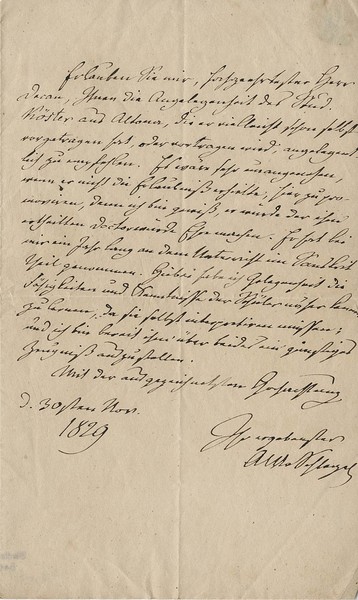 Erlauben Sie mir, hochgeehrtester Herr
Decan, Ihnen die Angelegenheit des Stud.
Köster aus Altona, die er vielleicht schon selbst
vorgetragen hat, oder vortragen wird, angelegent-
lich zu empfehlen. Es wäre sehr unangenehm,
wenn er nicht die Erlaubniß erhielte, hier zu pro-
moviren, denn ich bin gewiß, er würde der ihm
ertheilten Doctorwürde Ehre machen. Er hat bei
mir ein Jahr lang an dem Unterricht im Sanskrit
Theil genommen. Hiebei habe ich Gelegenheit die
Fähigkeiten und Kenntnisse der Schüler näher kennen
zu lernen, da sie selbst interpretiren müssen;
und ich bin bereit ihm über beides ein günstiges
Zeugniß auszustellen.
Mit der ausgezeichnetsten Hochachtung
d. 30sten Nov.
1829
Ihr ergebenster
AWvSchlegel